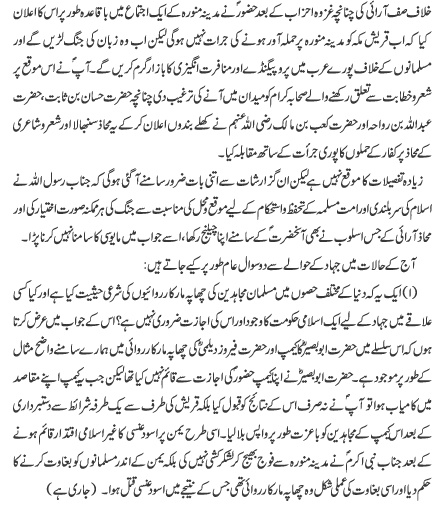 خلاف صف آرائی کی چنانچہ غزوہ احزاب کے بعد حضورؐ نے مدینہ منورہ کے ایک اجتماع میں باقاعدہ طور پر اس کا اعلان
کیا کہ اب قریش مکہ کو مدینہ منورہ پر حملہ آور ہونے کی جرات نہیں ہوگی لیکن اب وہ زبان کی جنگ لڑیں گے اور
مسلمانوں کے خلاف پورے عرب میں پروپیگنڈے اور منافرت انگیزی کا بازار گرم کریں گے۔ آپؐ نے اس موقع پر
شعر وخطابت سے تعلق رکھنے والے صحابہ کرام کو میدان میں آنے کی ترغیب دی چنانچہ حضرت حسان بن ثابت، حضرت
عبداللہ بن رواحہ اور حضرت کعب بن مالک رضی اللہ عنہم نے کھلے بندوں اعلان کر کے یہ محاذ سنبھالا اور شعر و شاعری
کے محاذ پر کفار کے حملوں کا پوری جرأت کے ساتھ مقابلہ کیا۔
زیادہ تفصیلات کا موقع نہیں ہے لیکن ان گزارشات سے اتنی بات ضرور سامنے آگئی ہوگی کہ جناب رسول اللہ نے
اسلام کی سربلندی اور امت مسلمہ کے تحفظ واستحکام کے لیے موقع ومحل کی مناسبت سے جنگ کی ہر ممکنہ صورت اختیار کی اور
محاذ آرائی کے جس اسلوب نے بھی آنحضرتؐ کے سامنے اپنا چیلنج رکھا، اسے جواب میں مایوسی کا سامنا نہیں کرنا پڑا۔
آج کے حالات میں جہاد کے حوالے سے دو سوال عام طور پر کیے جاتے ہیں:
(۱) ایک یہ کہ دنیا کے مختلف حصوں میں مسلمان مجاہدین کی چھاپہ مار کارروائیوں کی شرعی حیثیت کیا ہے اور کیا کسی
علاقے میں جہاد کے لیے ایک اسلامی حکومت کا وجود اور اس کی اجازت ضروری نہیں ہے؟ اس کے جواب میں عرض کرتا
ہوں کہ اس سلسلے میں حضرت ابوبصیرؓ کا کیمپ اور حضرت فیروز دیلمیؓ کی چھاپہ مار کارروائی میں ہمارے سامنے واضح مثال
کے طور پر موجود ہے۔ حضرت ابوبصیرؓ نے اپنا کیمپ حضورؐ کی اجازت سے قائم نہیں کیا تھا لیکن جب یہ کیمپ اپنے مقاصد
میں کامیاب ہوا تو آپؐ نے نہ صرف اس کے نتائج کو قبول کیا بلکہ قریش کی طرف سے یک طرفہ شرائط سے دستبرداری
کے بعد اس کیمپ کے مجاہدین کو باعزت طور پر واپس بلا لیا۔ اسی طرح یمن پر اسود عنسی کا غیر اسلامی اقتدار قائم ہونے
کے بعد جناب نبی اکرمؐ نے مدینہ منورہ سے فوج بھیج کر لشکر کشی نہیں کی بلکہ یمن کے اندر مسلمانوں کو بغاوت کرنے کا
حکم دیا اور اسی بغاوت کی عملی شکل وہ چھاپہ مار کارروائی تھی جس کے نتیجے میں اسود عنسی قتل ہوا۔ (جاری ہے)